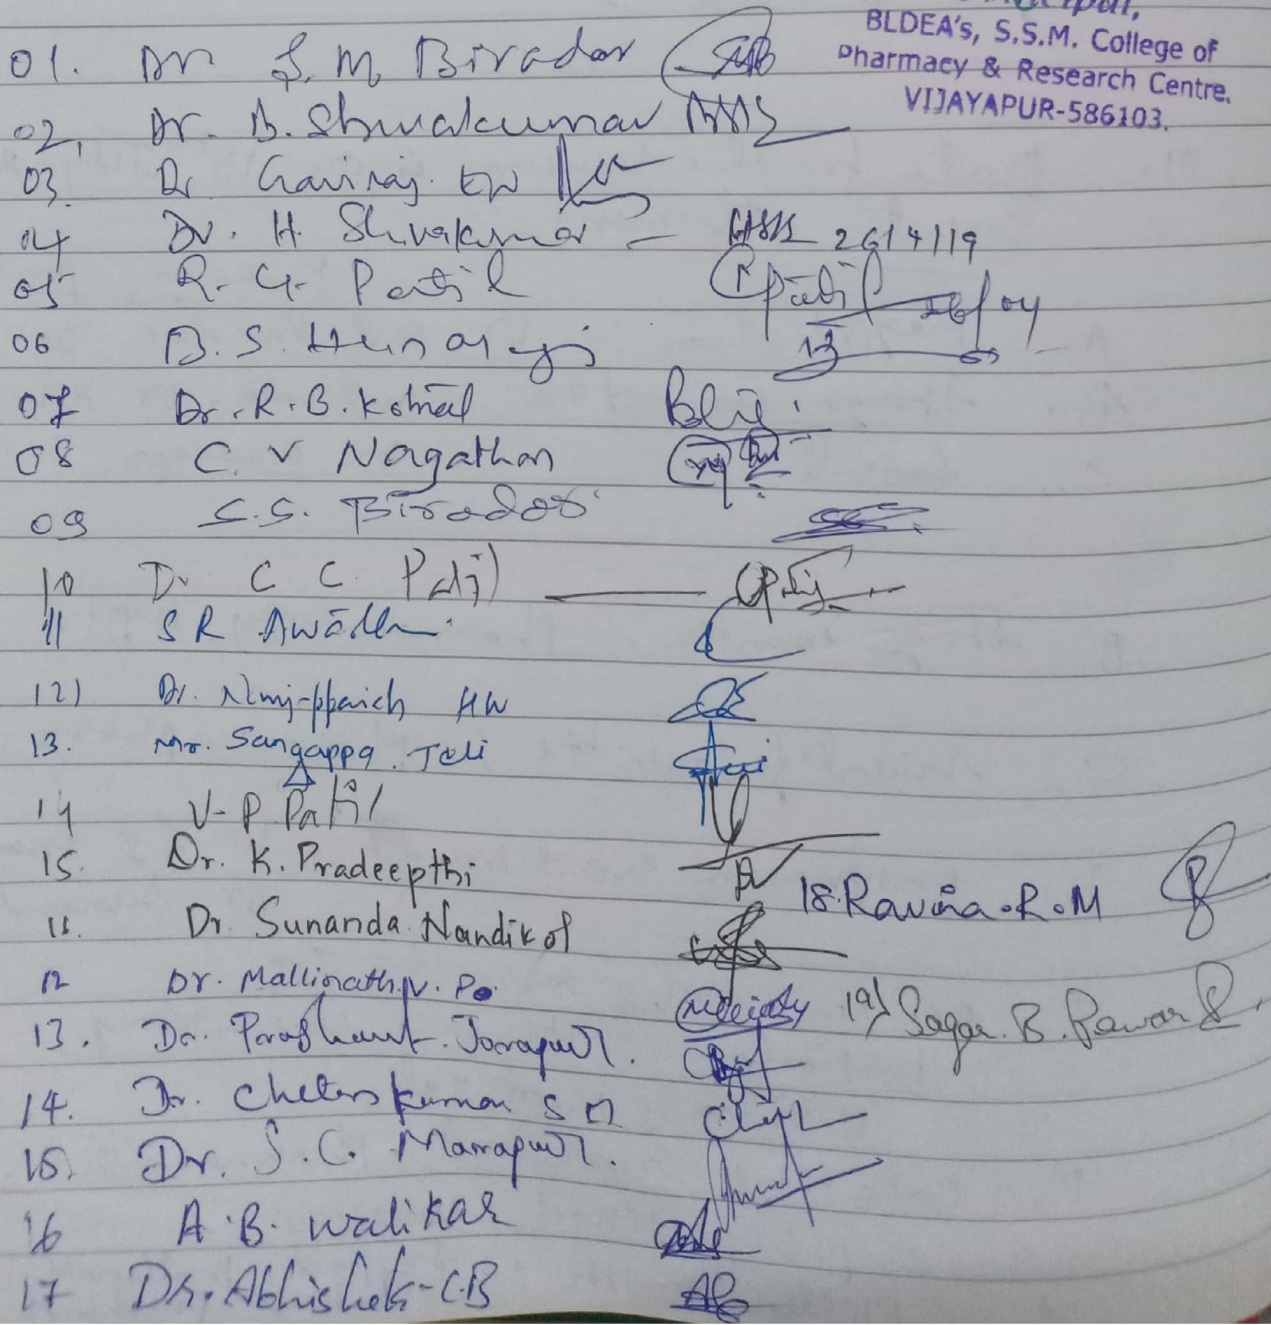 BLDEA's, S.S.M. College of
Pharmacy & Research Centre.
VIJAYAPUR-586103.
01. Dr S. M. Biradar
02. Dr. B. Shivakumar
03. Dr Gaviraj. EN
04 Dr. H. Shivakumar - 26/4/19
05 R. G. Patil Patil 26/04
06 B. S. Hunasgi 19
07 Dr. R. B. Kotnal
08 C. V Nagathan
09 S. S. Biradar
10 Dr C C. Patil
11 S R Awade
12) Dr. HN
13. Mr. Sangappa. Teli
14 V-P Patil
15. Dr. K. Pradeepthi
18. Raviña. R. M
11. Dr Sunanda Nandikol
12 Dr. Mallinath. P.
19) Sagar. B. Pawar
13. Dr. Prashant. Jorapur.
14. Dr. Chetan kumar S M
15. Dr. S. C. Marapur.
16 A. B. Walikar
17 Dr. Abhishek-C.B